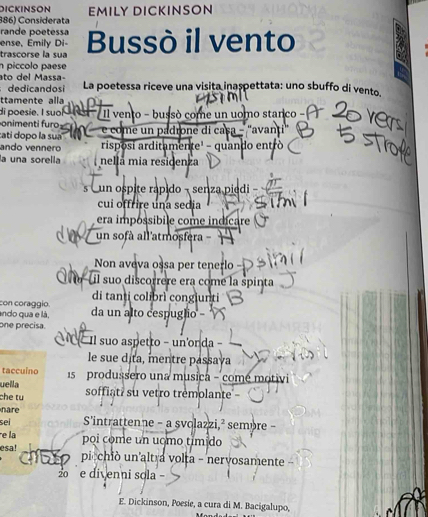 DICKINSON
EMILY DICKINSON
886) Considerata
rande poetessa
ense, Emily Di-
trascorse la sua
n piccolo paese
ato del Massa-
dedicandosi
ttamente alla
di poesie. I suoi
onimenti furo
cati dopo la sua
ando vennero
la una sorella
Bussò il vento
La poetessa riceve una visita inaspettata: uno sbuffo di vento.
4 simil
20 versi
5 strofe
Il vento – bussò come un uomo stanco – A
e come un padrone di casa – "avanti" B
risposi arditamente¹ – quando entrò C
nella mia residenza D
5 un ospite rapido – senza piedi –
cui offrire una sedia simil
era impossibile come indicare G
un sofà all'atmosfera – H
Non aveva ossa per tenerlo – simil
il suo discorrere era come la spinta J
di tanti colibrì congiunti B
da un alto cespuglio – K
con coraggio.
ando qua e là,
one precisa.
Il suo aspetto – un'onda – L
le sue dita, mentre passava
15 produssero una musica – come motivi
soffiati su vetro tremolante –
taccuino
uella
che tu
nare
sei
re la
esa!
S'intrattenne – a svolazzi,² sempre –
poi come un uomo timido
picchiò un'altra volta – nervosamente –
20 e divenni sola –
E. Dickinson, Poesie, a cura di M. Bacigalupo,